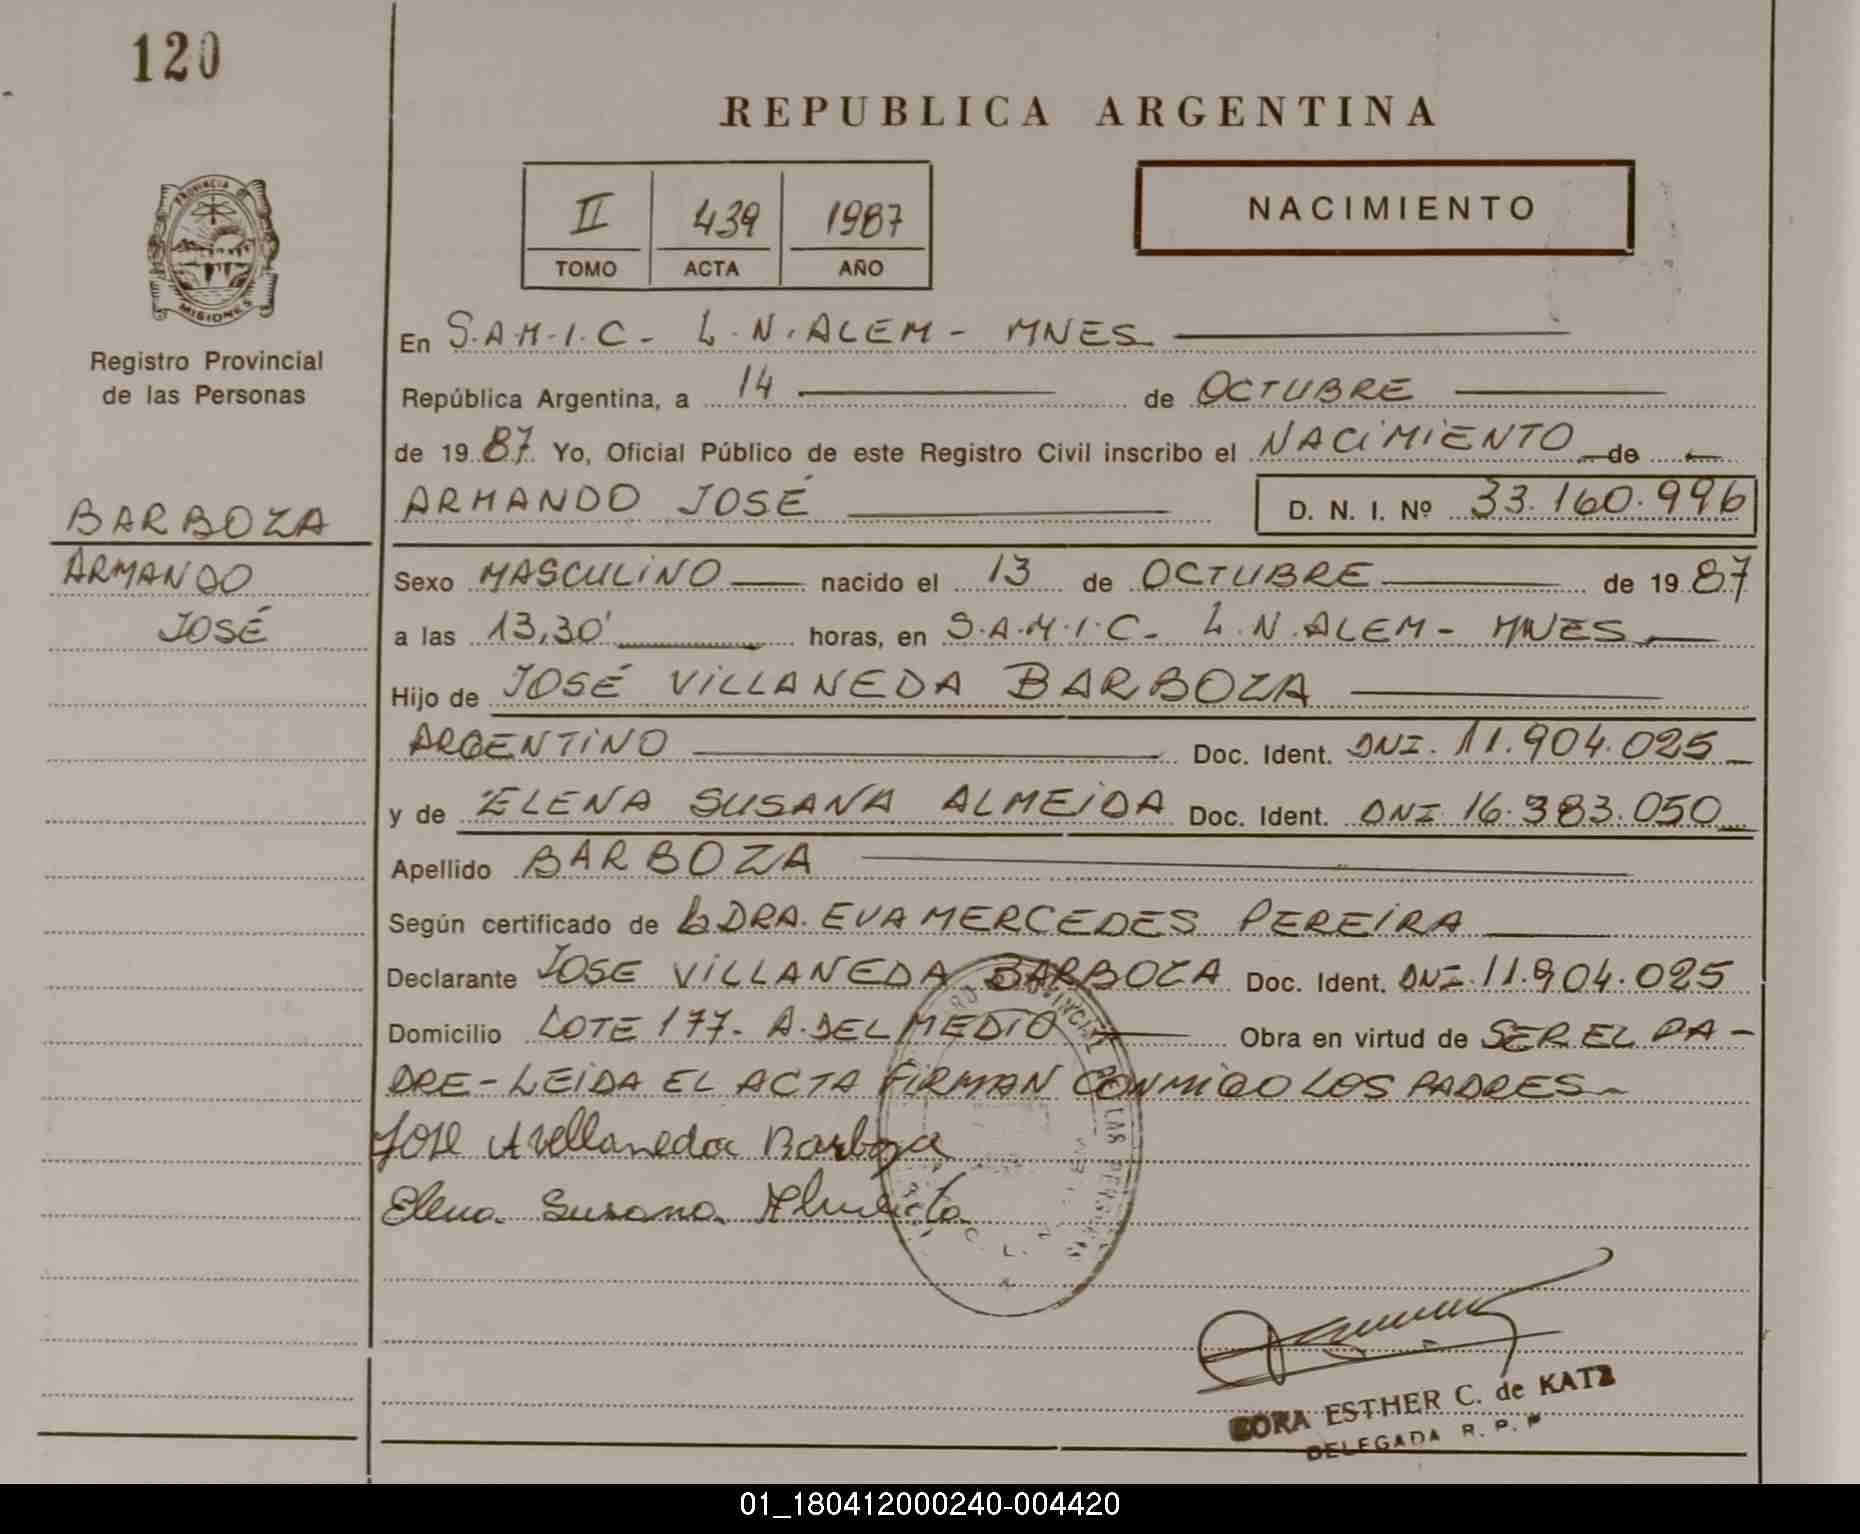 120
REPUBLICA ARGENTINA
II 439 1987
TOMO ACTA AÑO
NACIMIENTO
PROVINCIA DE
MISIONES
Registro Provincial
de las Personas
BARBOZA
ARMANDO
JOSÉ
En S.A.M.I.C. - L.N.ALEM - MNES
República Argentina, a 14 de OCTUBRE
de 1987. Yo, Oficial Público de este Registro Civil inscribo el NACIMIENTO de
ARMANDO JOSÉ D. N. I. Nº 33.160.996
Sexo MASCULINO nacido el 13 de OCTUBRE de 1987
a las 13,30' horas, en S.A.M.I.C. - L.N.ALEM - MNES
Hijo de JOSÉ VILLANEDA BARBOZA
ARGENTINO Doc. Ident. DNI. 11.904.025
y de ELENA SUSANA ALMEIDA Doc. Ident. DNI 16.383.050
Apellido BARBOZA
Según certificado de la DRA. EVA MERCEDES PEREIRA
Declarante JOSE VILLANEDA BARBOZA Doc. Ident. DNI. 11.904.025
Domicilio LOTE 177- A. DEL MEDIO Obra en virtud de SER EL PA-
DRE - LEIDA EL ACTA FIRMAN CONMIGO LOS PADRES
Jose Avellaneda Barboza
Elena Susana Almeida
ESTHER C. de KATZ
DELEGADA R. P. P
01_180412000240-004420